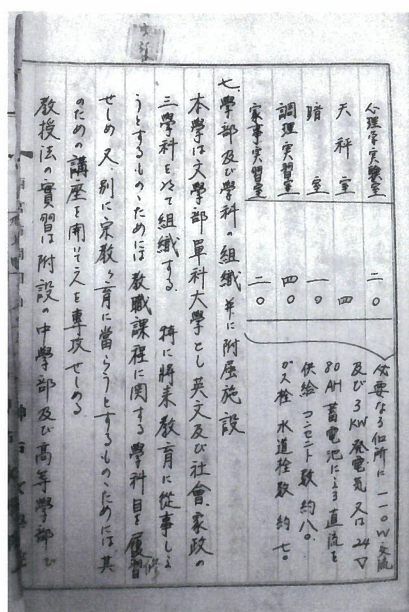 心理学実験室 二〇
天秤室 四
暗室 一〇
調理実習室 四〇
家事実習室 二〇
必要なる個所に一一〇W交流
及び3KW発電気又は24V
80AH蓄電池による直流を
供給 コンセント数約八〇.
ガス栓 水道栓数約七〇
七、學部及び學科の組織并に附屈施設
本學は文學部單科大學とし英文及び社會、家政の
三學科を以て組織する. 特に將来教育に從事しよ
うとするものゝためには教職課程に関する學科目を履修
せしめ又、別に宗教々育に當らうとするものゝためには其
のための講座を開いて之を專攻せしめる
教授法の實習は附設の中學部及び高等學部で